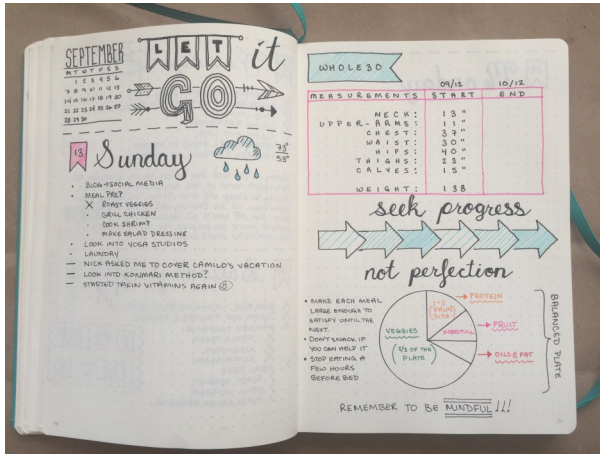 SEPTEMBER
M T W T F S S
1 2 3 4 5 6
7 8 9 10 11 12 13
14 15 16 17 18 19 20
21 22 23 24 25 26 27
28 29 30
LET it
GO
13 Sunday
73°
53°
• BLOG + SOCIAL MEDIA
• MEAL PREP
X ROAST VEGGIES
• GRILL CHICKEN
• COOK SHRIMP
• MAKE SALAD DRESSING
• LOOK INTO YOGA STUDIOS
• LAUNDRY
— NICK ASKED ME TO COVER CAMILO'S VACATION
— LOOK INTO KONMARI METHOD?
— STARTED TAKIN VITAMINS AGAIN
WHOLE30
09/12 10/12
MEASUREMENTS START END
NECK: 13"
UPPER-ARMS: 11"
CHEST: 37"
WAIST: 30"
HIPS: 40"
THIGHS: 23"
CALVES: 15"
WEIGHT: 138
seek progress
not perfection
• MAKE EACH MEAL
LARGE ENOUGH TO
SATISFY UNTIL THE
NEXT.
• DON'T SNACK IF
YOU CAN HELP IT
• STOP EATING A
FEW HOURS
BEFORE BED
VEGGIES
2/3 OF THE
PLATE
1-2
(PALM)
SIZE
PROTEIN
HANDFULL
FRUIT
OILS & FAT
BALANCED PLATE
REMEMBER TO BE MINDFUL!!!